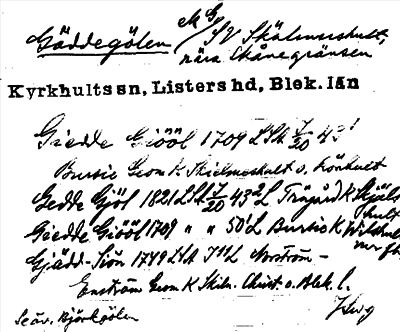 Gäddegölen M G / SV Skälmershult,
nära Skånegränsen
Kyrkhults sn, Listers hd, Blek. län
Giedde Giööl 1709 LSA 7/20 43¹
Bursie Geom K Skielmeshult o. Lönhult
Gedde Giöl 1821 LSA 7/20 43² L Trägård K Skjels
hult
Giedde Giööl 1709 " " 50¹ L Bursie K
Gjädd-Siön 1749 LSA Norström -
Enström Geom K Skån. Christ. o. Blek. l.
Se äv. Björkgölen